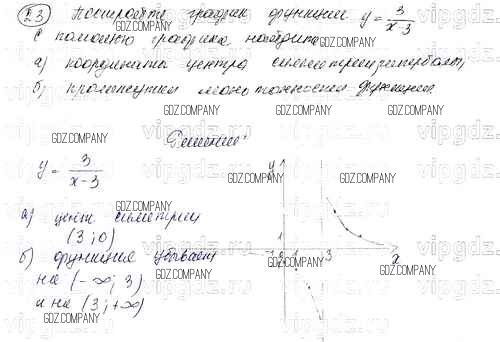 23 Постройте график функции y = 3/(x-3)
С помощью графика найдите
а) координаты центра симметрии гиперболы,
б) промежутки монотонности функции
Решение:
y = 3/(x-3)
а) центр симметрии
(3; 0)
б) функция убывает
на (-∞; 3)
и на (3; +∞)
y
1
-1
1
3
x
GDZ.COMPANY
vipgdz.ru